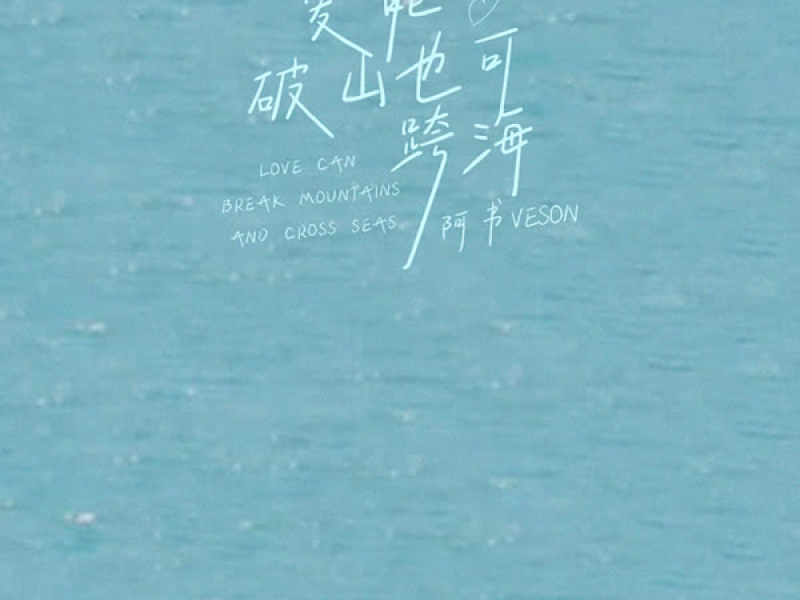 爱能
破山也可
跨海
LOVE CAN
BREAK MOUNTAINS
AND CROSS SEAS
阿书VESON